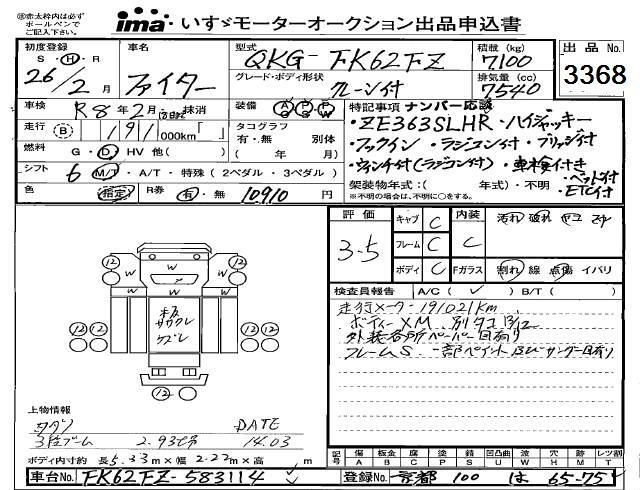 ㊟赤太枠内は必ず
ボールペンで
ご記入下さい。
ima・いすゞモーターオークション出品申込書
初度登録 S・H・R 26/2月
車名 ファイター
型式 QKG-FK62FZ
グレード・ボディ形状 クレーン付
積載(kg) 7100
排気量(cc) 7540
出品No. 3368
車検 R8年2月 日 抹消
走行 B 191,000km「 」
燃料 G・D・HV 他( )
シフト 6 M/T・A/T・特殊(2ペダル・3ペダル)
色 指定 R券 有・無 10910円
装備 A/C P/S P/W
タコグラフ
有・無 別体
( 年 月)
特記事項 ナンバー応談
・ZE363SLHR・ハイジャッキー
・フックイン・ラジコン付・ブリッジ付
・ウィンチ付(ラジコン付)・車検付き
・ベット付
・ETC付
架装物年式:( 年式)・不明
※不明の場合は、不明に○をする。
評価 3.5
キャブ C
フレーム C
ボディ C
内装 C
Fガラス
汚れ 破れ ヤコ スケ
割れ 線 点傷 イバリ
検査員報告 A/C( ✓ ) B/T( )
走行メーター191021km
ボディーXM 別タコ R5/12
外装各所ペーパー目有り
フレームS 一部ペイント及びサンダー目有り
12 12
W
W W W
板
サクレ
ケズレ
12 12
12 12
上物情報
タダノ DATE
3段ブーム 2.93t吊 14.03
ボディ内寸約 長5.33m×幅2.22m×高 m
記号 A傷 B板金 C腐 P塗 S錆 U凹凸曲 W波 H穴 M欠 Tレッ割
車台No. FK62FZ-583114
登録No. 京都 100 は 65-75